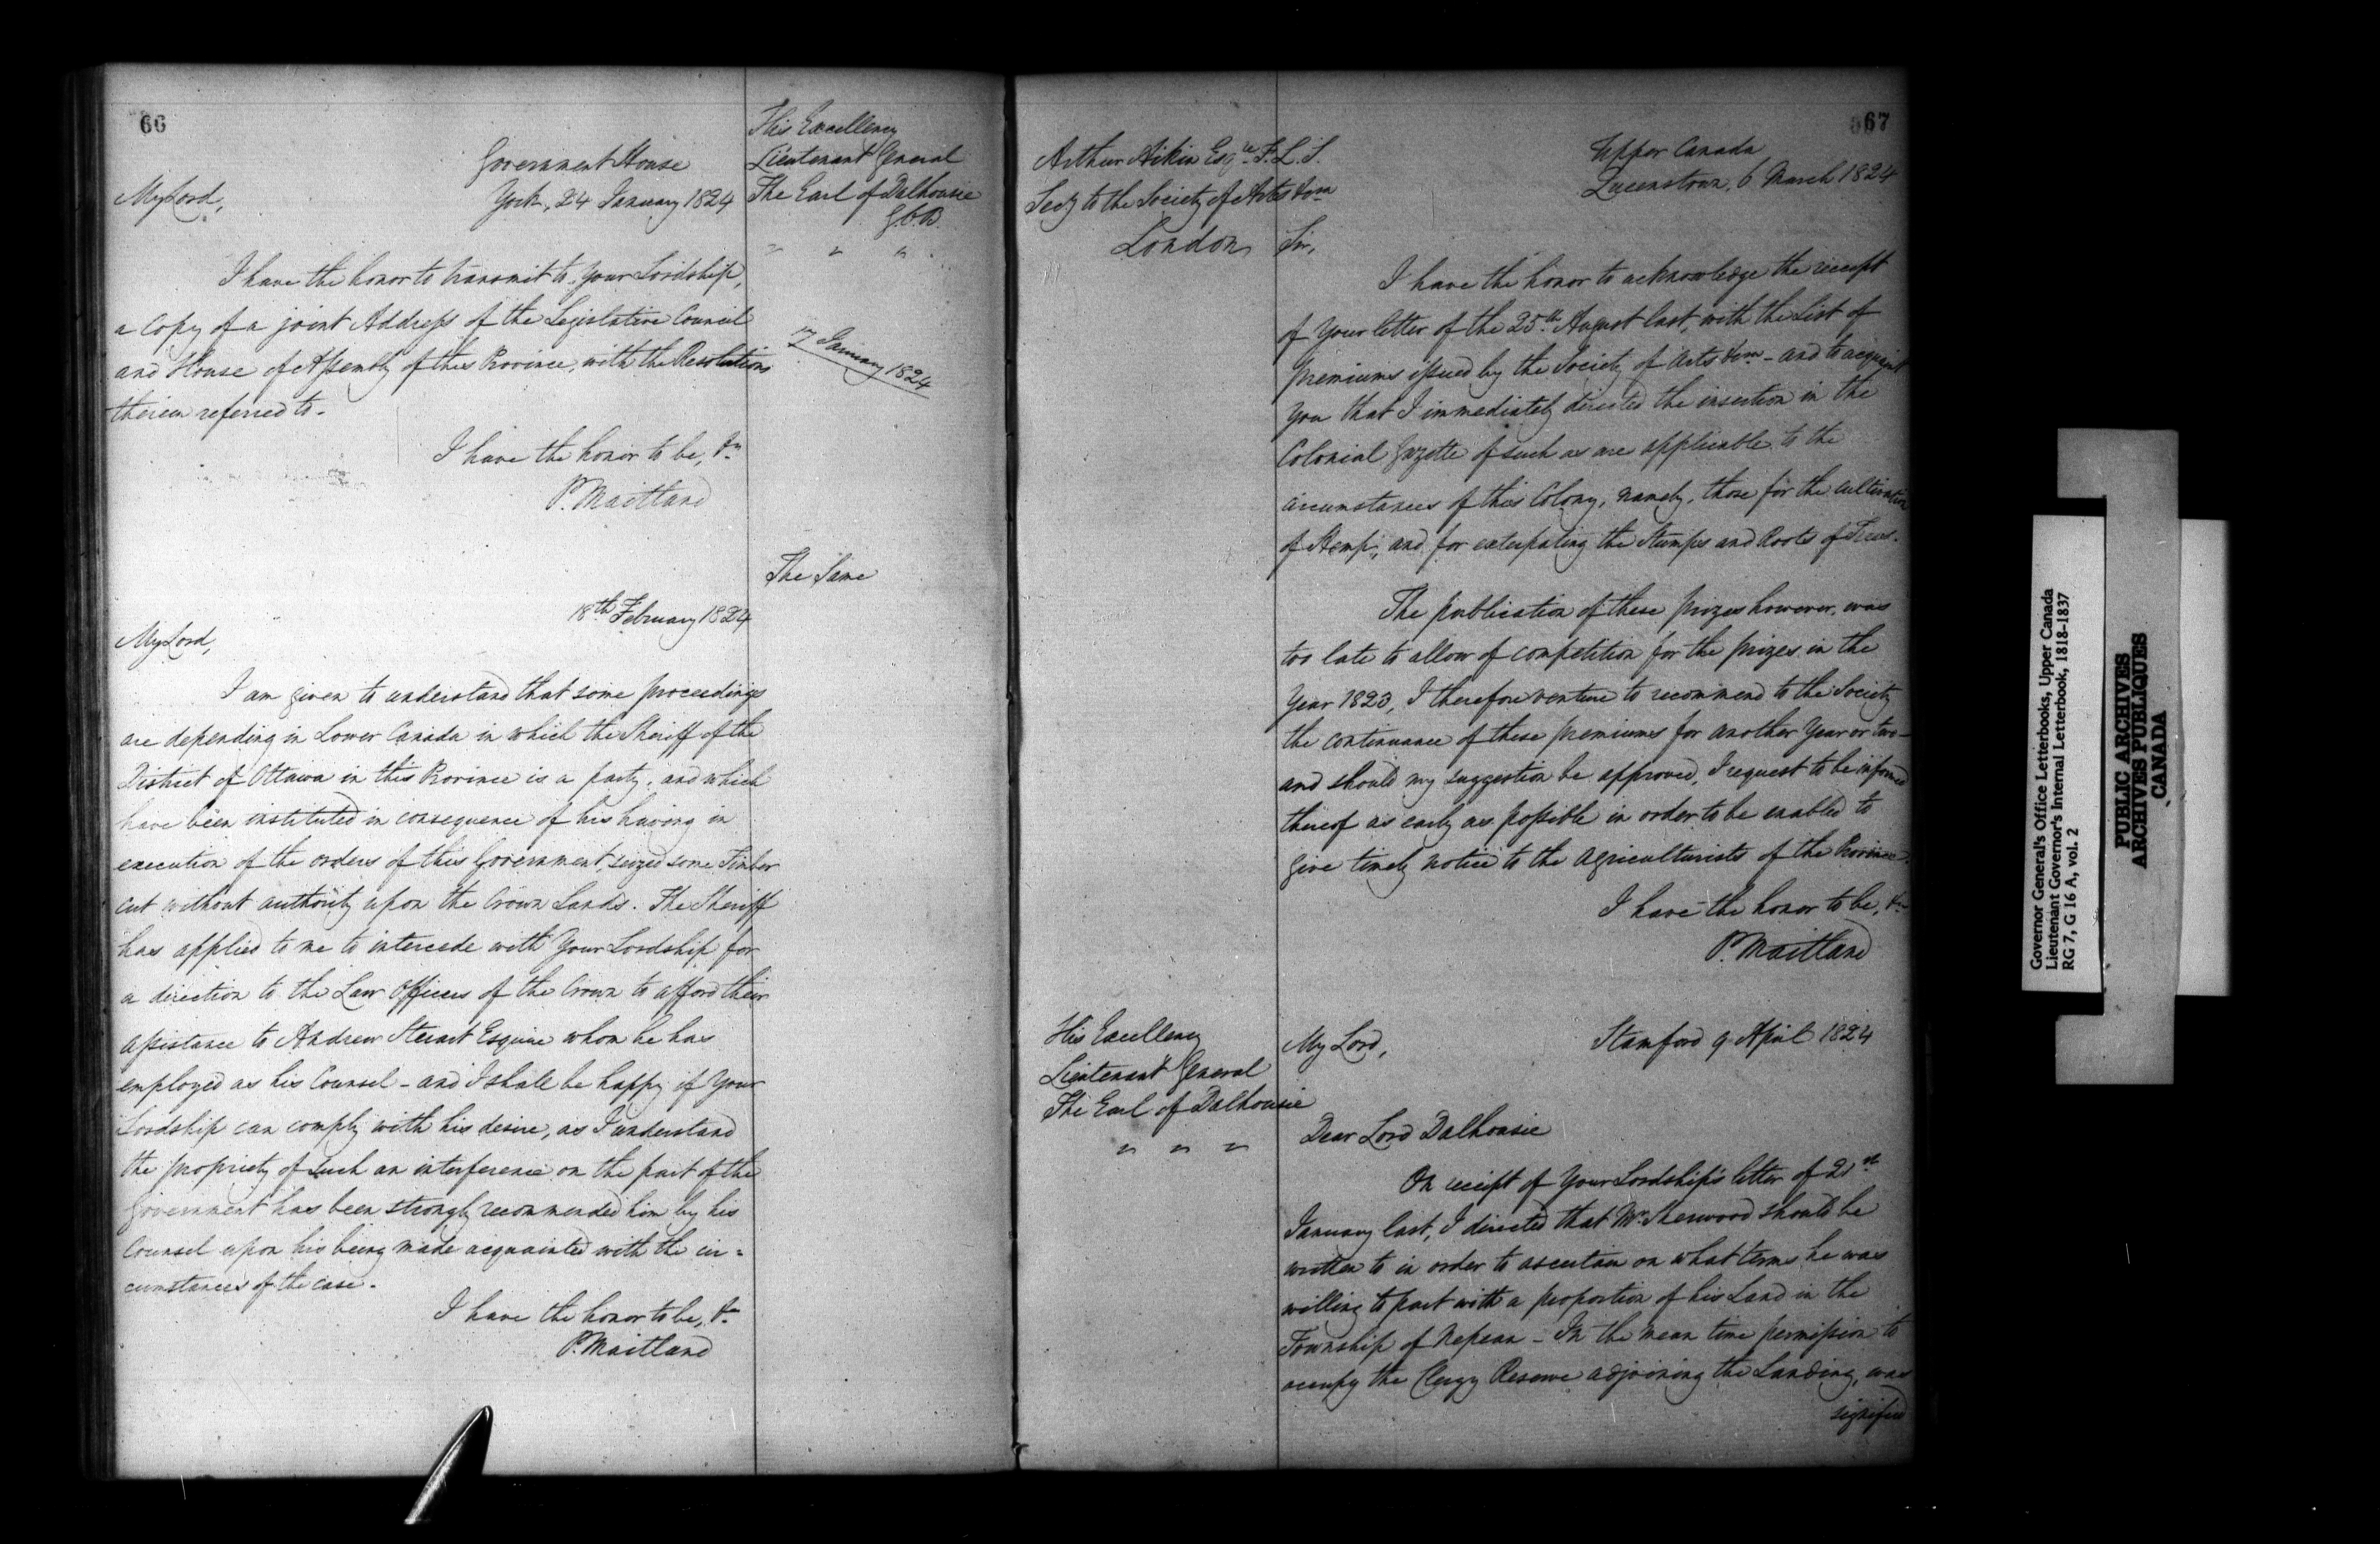 66
His Excellency
Lieutenant General
The Earl of Dalhousie
G.C.B.
" " "
Government House
York, 24 January 1824
My Lord,
I have the honor to transmit to Your Lordship,
a Copy of a joint Address of the Legislative Council
and House of Assembly of this Province, with the Resolutions
therein referred to.
17 January 1824
I have the honor to be, &c
P. Maitland
The Same
18th February 1824
My Lord,
I am given to understand that some proceedings
are depending in Lower Canada in which the Sheriff of the
District of Ottawa in this Province is a party, and which
have been instituted in consequence of his having in
execution of the orders of this Government, seized some Timber
cut without authority upon the Crown Lands. The Sheriff
has applied to me to intercede with Your Lordship for
a direction to the Law Officers of the Crown to afford their
assistance to Andrew Steuart Esquire whom he has
employed as his Counsel - and I shall be happy if Your
Lordship can comply with his desire, as I understand
the propriety of such an interference on the part of the
Government has been strongly recommended him by his
Counsel upon his being made acquainted with the cir=
cumstances of the case.
I have the honor to be, &c
P. Maitland
67
Arthur Aikin Esqre F.L.S.
Secy to the Society of Arts &ca
London
Upper Canada
Queenstown, 6 March 1824
Sir,
I have the honor to acknowledge the receipt
of Your letter of the 25th August last, with the List of
premiums issued by the Society of Arts &ca - and to acquaint
You that I immediately directed the insertion in the
Colonial Gazette of such as are applicable to the
circumstances of this Colony, namely, those for the cultivation
of Hemp, and for extirpating the Stumps and Roots of Trees.
The publication of these prizes however, was
too late to allow of competition for the prizes in the
Year 1823, I therefore venture to recommend to the Society
the continuance of these premiums for another Year or two -
and should my suggestion be approved, I request to be informed
thereof as early as possible in order to be enabled to
give timely notice to the Agriculturists of the Province.
I have the honor to be, &c
P. Maitland
His Excellency
Lieutenant General
The Earl of Dalhousie
" " "
My Lord,
Stamford 9 April 1824
Dear Lord Dalhousie
On receipt of Your Lordship's letter of 21st
January last, I directed that Mr Sherwood should be
written to in order to ascertain on what terms he was
willing to part with a proportion of his Land in the
Township of Nepean - In the mean time permission to
occupy the Clergy Reserve adjoining the Landing, was
signified
Governor General's Office Letterbooks, Upper Canada
Lieutenant Governor's Internal Letterbook, 1818-1837
RG 7, G 16 A, vol. 2
PUBLIC ARCHIVES
ARCHIVES PUBLIQUES
CANADA